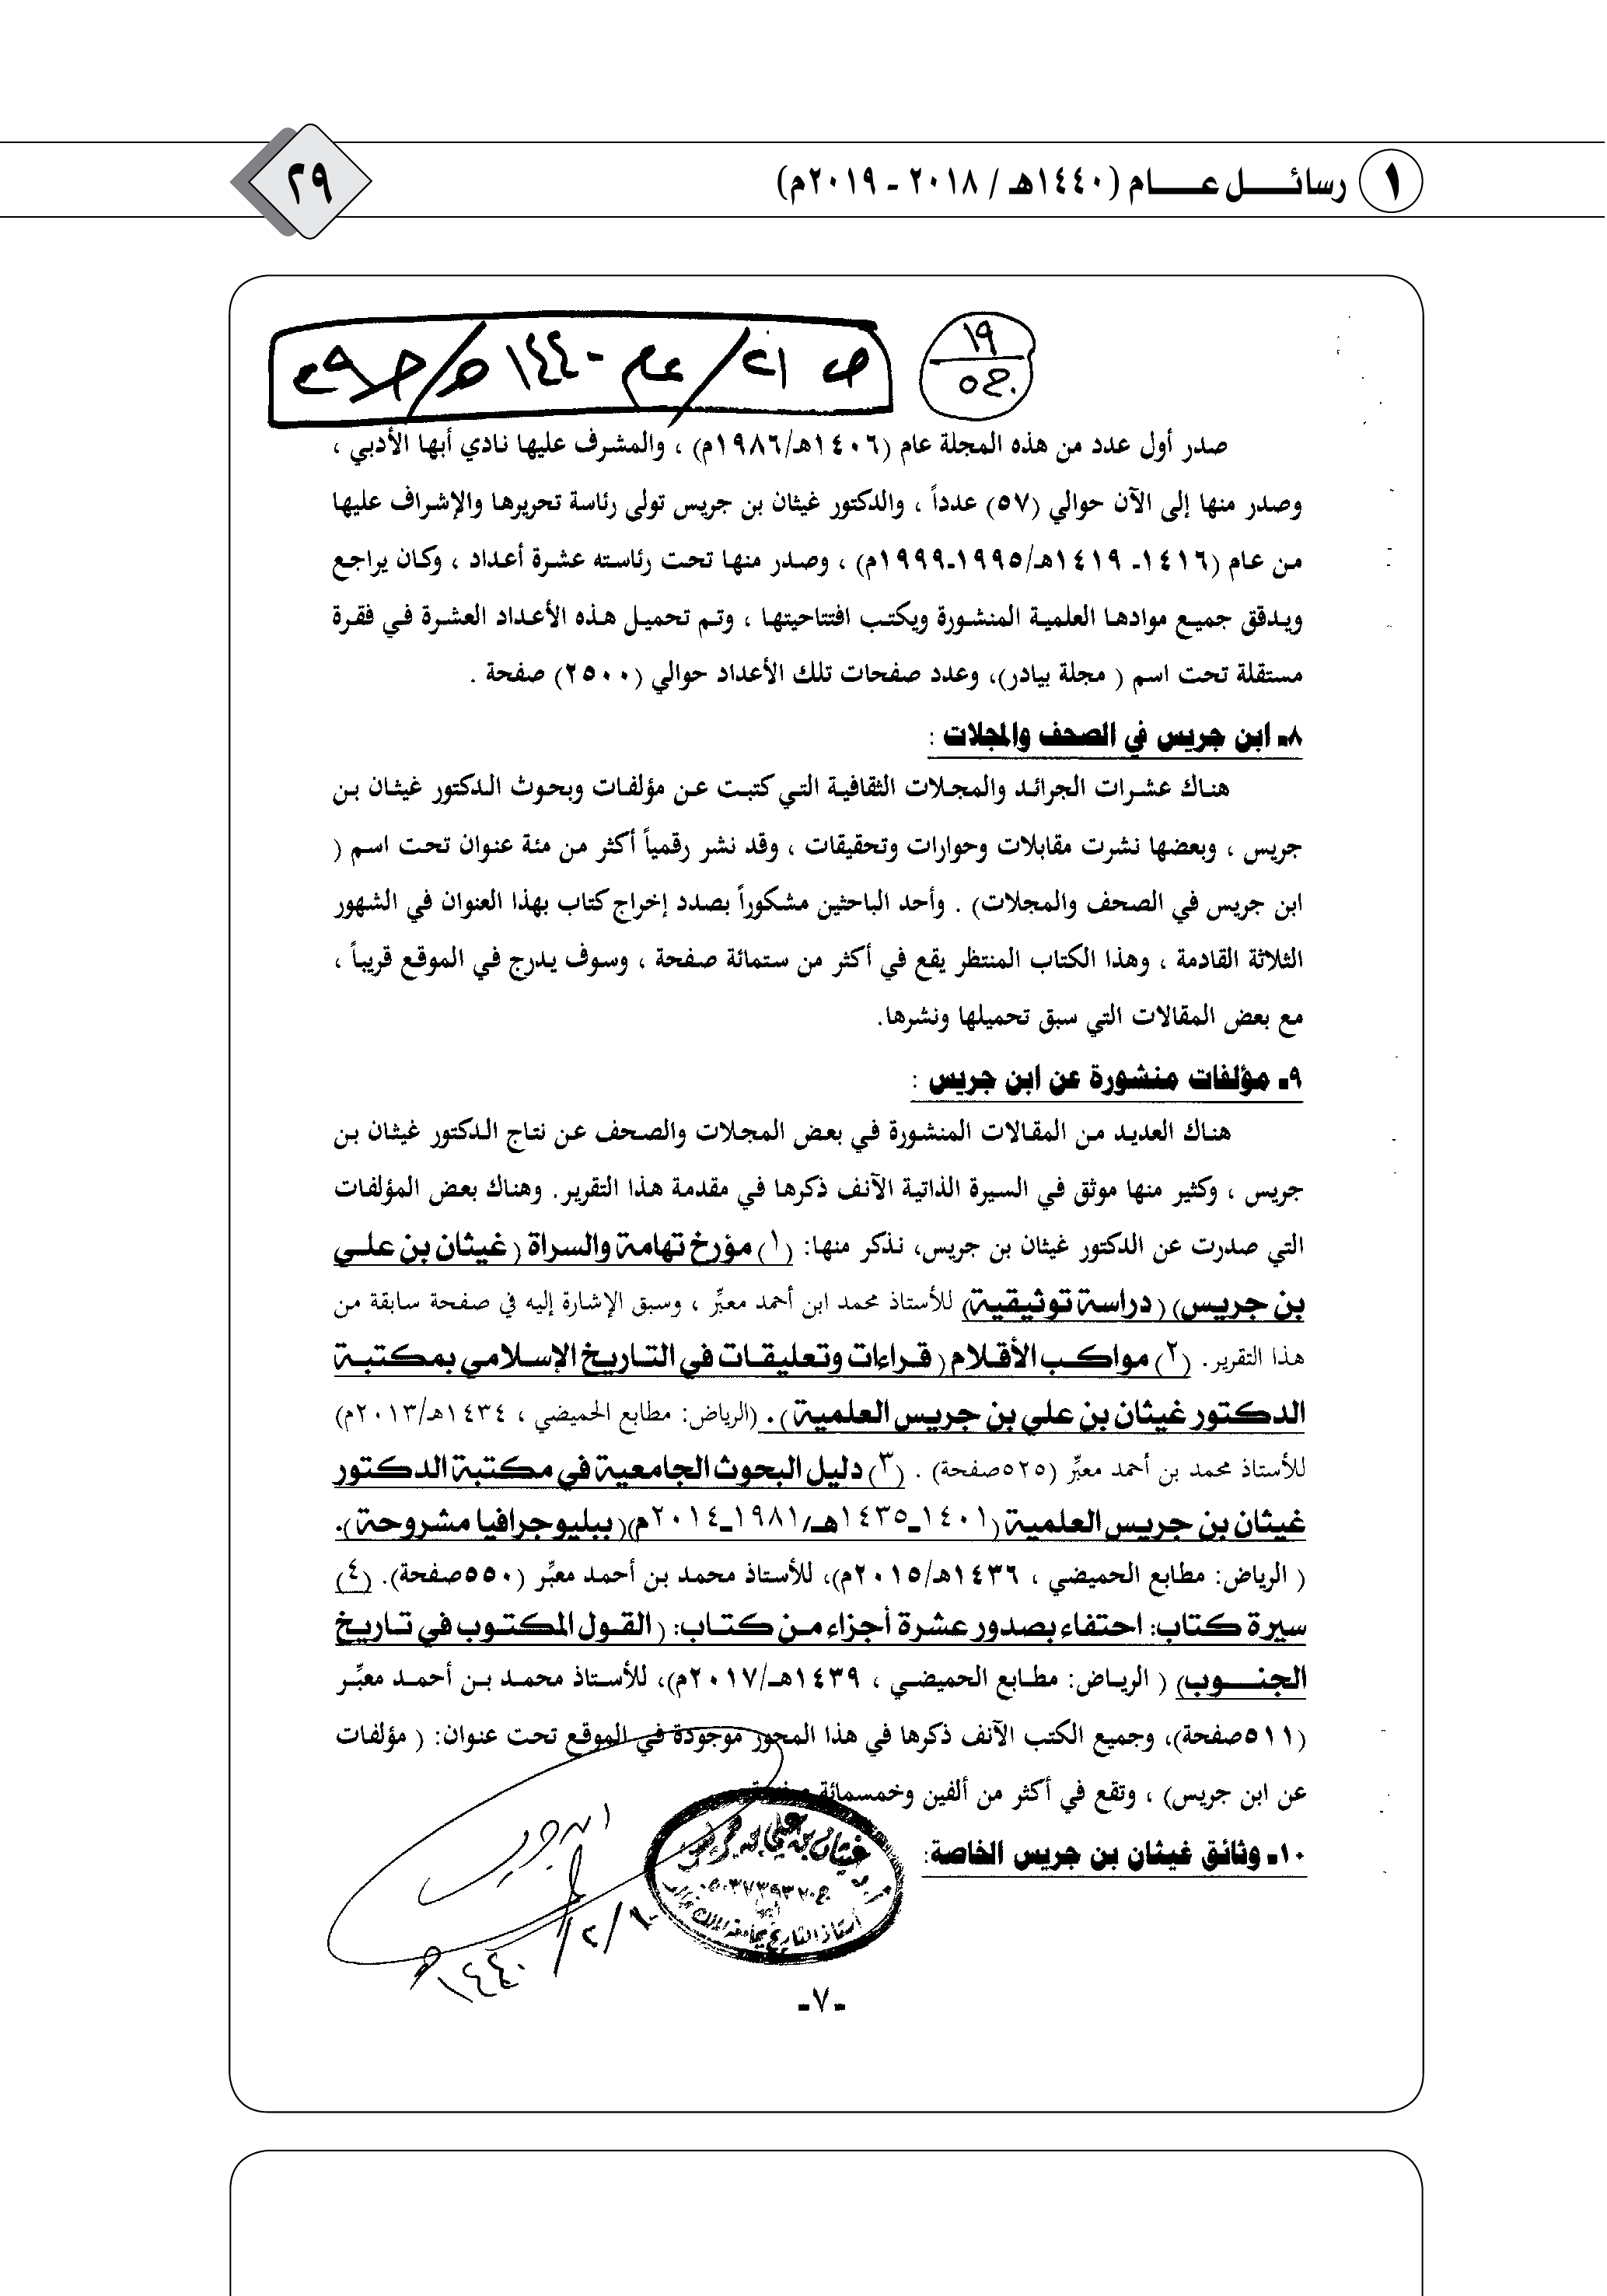 ١ رسائل عام (١٤٤٠هـ / ٢٠١٨ - ٢٠١٩م)
٢٩
١٩
ص ٢١/ عام ١٤٤٠هـ/
صدر أول عدد من هذه المجلة عام (١٤٠٦هـ/١٩٨٦م) ، والمشرف عليها نادي أبها الأدبي ،
وصدر منها إلى الآن حوالي (٥٧) عدداً ، والدكتور غيثان بن جريس تولى رئاسة تحريرها والإشراف عليها
من عام (١٤١٦ـ ١٤١٩هـ/١٩٩٥ـ١٩٩٩م) ، وصدر منها تحت رئاسته عشرة أعداد ، وكان يراجع
ويدقق جميع موادها العلمية المنشورة ويكتب افتتاحيتها ، وتم تحميل هذه الأعداد العشرة في فقرة
مستقلة تحت اسم ( مجلة بيادر)، وعدد صفحات تلك الأعداد حوالي (٢٥٠٠) صفحة .
٨ـ ابن جريس في الصحف والمجلات :
هناك عشرات الجرائد والمجلات الثقافية التي كتبت عن مؤلفات وبحوث الدكتور غيثان بن
جريس ، وبعضها نشرت مقابلات وحوارات وتحقيقات ، وقد نشر رقمياً أكثر من مئة عنوان تحت اسم (
ابن جريس في الصحف والمجلات) . وأحد الباحثين مشكوراً بصدد إخراج كتاب بهذا العنوان في الشهور
الثلاثة القادمة ، وهذا الكتاب المنتظر يقع في أكثر من ستمائة صفحة ، وسوف يدرج في الموقع قريباً ،
مع بعض المقالات التي سبق تحميلها ونشرها.
٩ـ مؤلفات منشورة عن ابن جريس :
هناك العديد من المقالات المنشورة في بعض المجلات والصحف عن نتاج الدكتور غيثان بن
جريس ، وكثير منها موثق في السيرة الذاتية الآنف ذكرها في مقدمة هذا التقرير. وهناك بعض المؤلفات
التي صدرت عن الدكتور غيثان بن جريس، نذكر منها: (١) مؤرخ تهامة والسراة ( غيثان بن علي
بن جريس) ( دراسة توثيقية) للأستاذ محمد ابن أحمد معبِّر ، وسبق الإشارة إليه في صفحة سابقة من
هذا التقرير. (٢) مواكب الأقلام ( قراءات وتعليقات في التاريخ الإسلامي بمكتبة
الدكتور غيثان بن علي بن جريس العلمية ) . (الرياض: مطابع الحميضي ، ١٤٣٤هـ/٢٠١٣م)
للأستاذ محمد بن أحمد معبِّر (٥٢٥صفحة) . (٣) دليل البحوث الجامعية في مكتبة الدكتور
غيثان بن جريس العلمية (١٤٠١ـ١٤٣٥هـ/١٩٨١ـ٢٠١٤م)( ببليوجرافيا مشروحة ).
( الرياض: مطابع الحميضي ، ١٤٣٦هـ/٢٠١٥م)، للأستاذ محمد بن أحمد معبِّر (٥٥٠صفحة). (٤)
سيرة كتاب: احتفاء بصدور عشرة أجزاء من كتاب: ( القول المكتوب في تاريخ
الجنوب) ( الرياض: مطابع الحميضي ، ١٤٣٩هـ/٢٠١٧م)، للأستاذ محمد بن أحمد معبِّر
(٥١١صفحة)، وجميع الكتب الآنف ذكرها في هذا المحور موجودة في الموقع تحت عنوان: ( مؤلفات
عن ابن جريس) ، وتقع في أكثر من ألفين وخمسمائة صفحة
١٠ـ وثائق غيثان بن جريس الخاصة:
غيثان بن علي بن جريس
أبها
أستاذ التاريخ بجامعة الملك خالد
ابن جريس
١٤٤٠هـ
ـ٧ـ